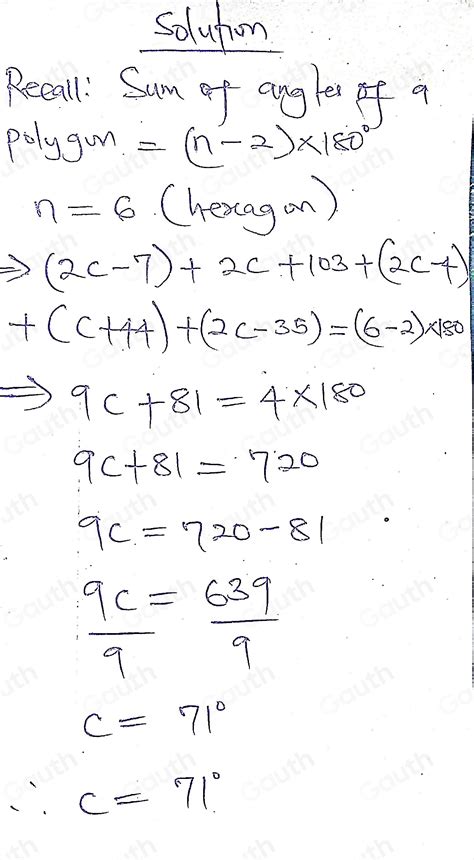 Solution
Recall: Sum of angles of a
polygon = (n-2)×180°
n = 6 (hexagon)
⇒ (2c-7) + 2c + 103 + (2c-4)
+ (c+44) + (2c-35) = (6-2)×180
⇒ 9c + 81 = 4×180
9c + 81 = 720
9c = 720 - 81
9c = 639
9 9
c = 71°
∴ c = 71°